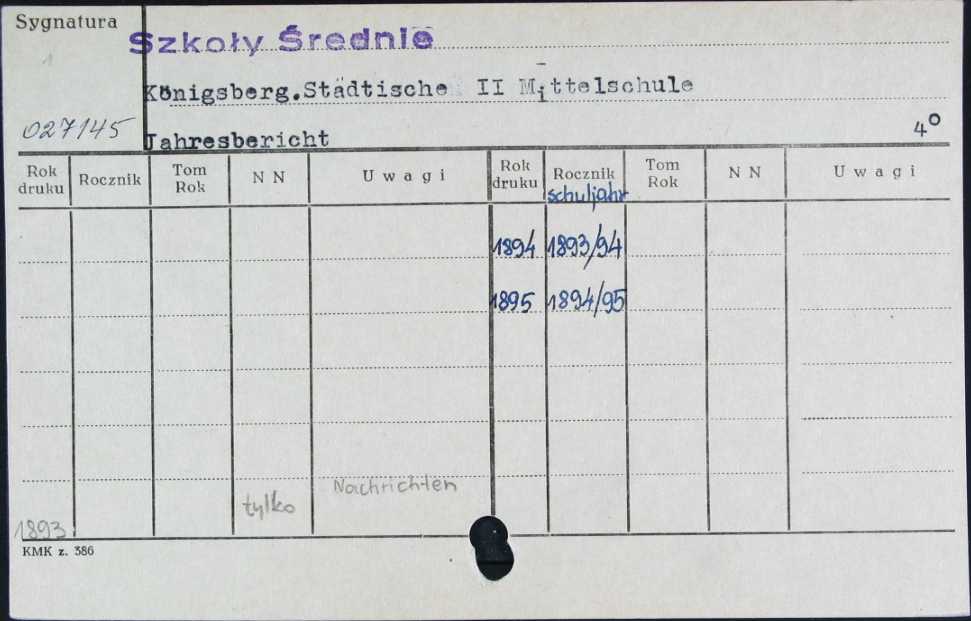 Sygnatura
Szkoły Średnie
Königsberg.Städtische II Mittelschule
027145
Jahresbericht
4°
Rok druku Rocznik Tom Rok N N Uwagi Rok druku Rocznik Tom Rok N N Uwagi
schuljahr
1894 1893/94
1895 1894/95
1893 tylko Nachrichten
KMK z. 386